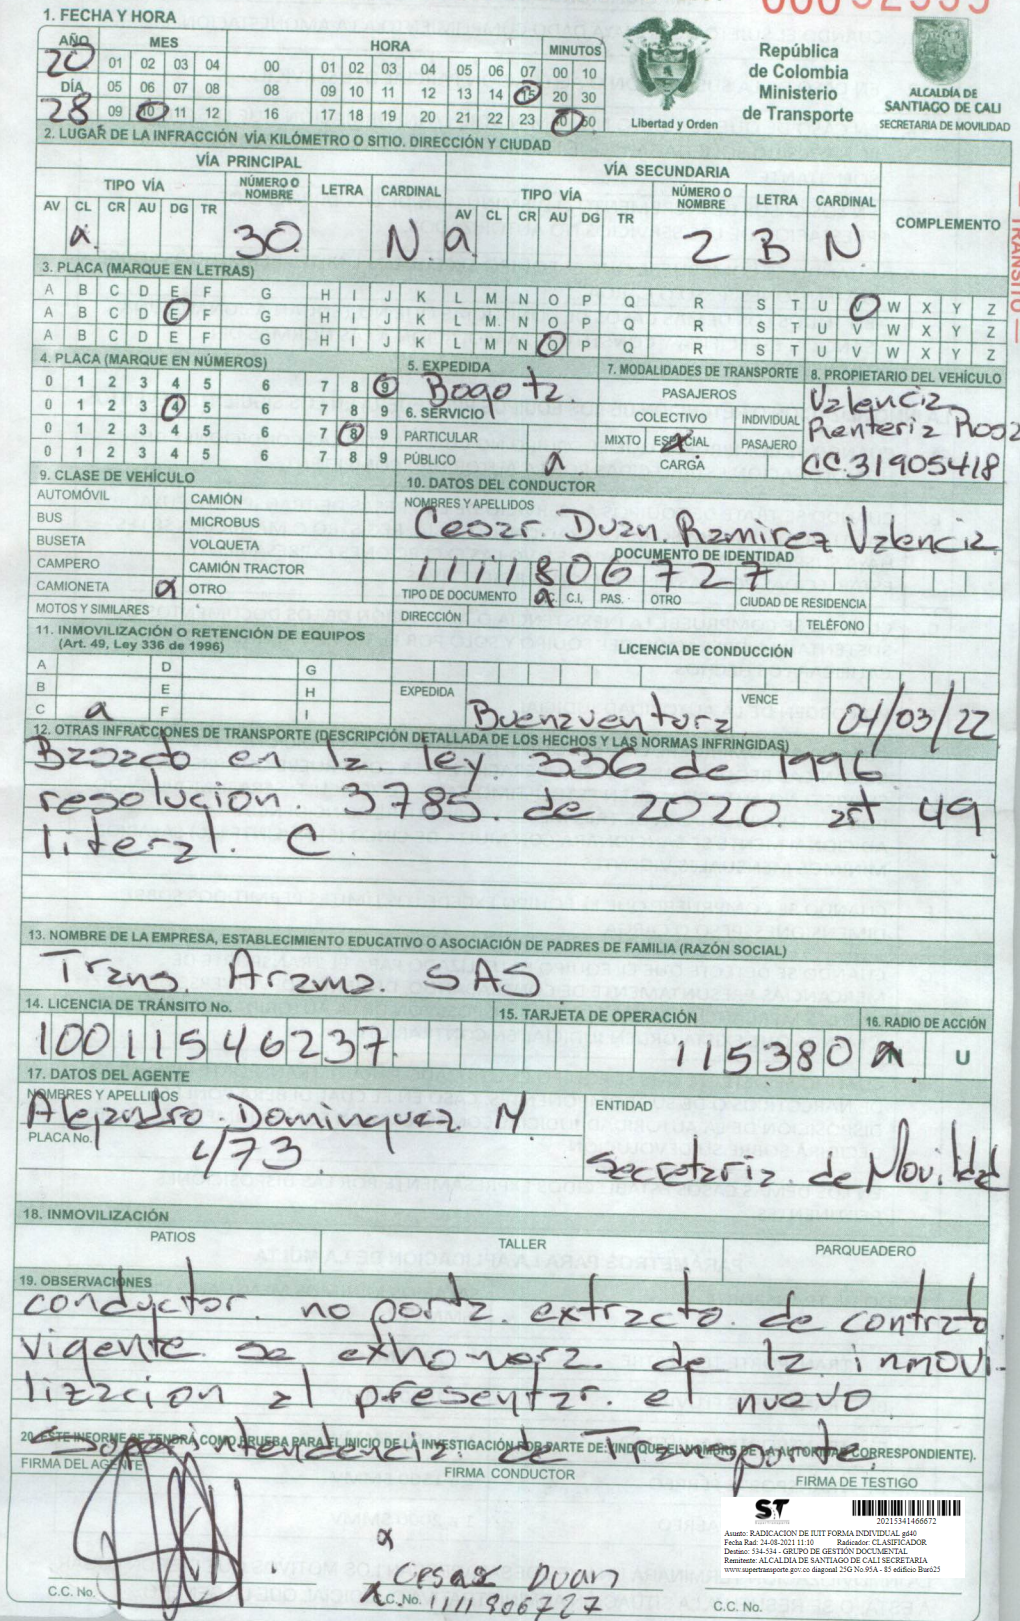 1. FECHA Y HORA
AÑO MES HORA MINUTOS
20 01 02 03 04 00 01 02 03 04 05 06 07 00 10
DÍA 05 06 07 08 08 09 10 11 12 13 14 15 20 30
28 09 10 11 12 16 17 18 19 20 21 22 23 40 50
Libertad y Orden
República
de Colombia
Ministerio
de Transporte
ALCALDÍA DE
SANTIAGO DE CALI
SECRETARIA DE MOVILIDAD
TRANSITO
2. LUGAR DE LA INFRACCIÓN VÍA KILÓMETRO O SITIO. DIRECCIÓN Y CIUDAD
VÍA PRINCIPAL VÍA SECUNDARIA
TIPO VÍA NÚMERO O NOMBRE LETRA CARDINAL TIPO VÍA NÚMERO O NOMBRE LETRA CARDINAL COMPLEMENTO
AV CL CR AU DG TR AV CL CR AU DG TR
30 N 2 B N
3. PLACA (MARQUE EN LETRAS)
A B C D E F G H I J K L M N O P Q R S T U V W X Y Z
A B C D E F G H I J K L M N O P Q R S T U V W X Y Z
A B C D E F G H I J K L M N O P Q R S T U V W X Y Z
4. PLACA (MARQUE EN NÚMEROS)
0 1 2 3 4 5 6 7 8 9
0 1 2 3 4 5 6 7 8 9
0 1 2 3 4 5 6 7 8 9
0 1 2 3 4 5 6 7 8 9
5. EXPEDIDA
Bogota
6. SERVICIO
PARTICULAR
PÚBLICO
7. MODALIDADES DE TRANSPORTE
PASAJEROS
COLECTIVO INDIVIDUAL
MIXTO ESPECIAL PASAJERO
CARGA
8. PROPIETARIO DEL VEHÍCULO
Valencia
Renteria Rosa
CC.31905418
9. CLASE DE VEHÍCULO
AUTOMÓVIL CAMIÓN
BUS MICROBUS
BUSETA VOLQUETA
CAMPERO CAMIÓN TRACTOR
CAMIONETA OTRO
MOTOS Y SIMILARES
10. DATOS DEL CONDUCTOR
NOMBRES Y APELLIDOS
Cesar. Duan. Ramirez Valencia
DOCUMENTO DE IDENTIDAD
1111806727
TIPO DE DOCUMENTO C.C. C.I, PAS. OTRO CIUDAD DE RESIDENCIA
DIRECCIÓN TELÉFONO
11. INMOVILIZACIÓN O RETENCIÓN DE EQUIPOS
(Art. 49, Ley 336 de 1996)
A D G
B E H
C F I
LICENCIA DE CONDUCCIÓN
EXPEDIDA Buenaventura VENCE 04/03/22
12. OTRAS INFRACCIONES DE TRANSPORTE (DESCRIPCIÓN DETALLADA DE LOS HECHOS Y LAS NORMAS INFRINGIDAS)
Basado en la ley. 336 de 1996
resolucion. 3785. de 2020. art 49
literal. C
13. NOMBRE DE LA EMPRESA, ESTABLECIMIENTO EDUCATIVO O ASOCIACIÓN DE PADRES DE FAMILIA (RAZÓN SOCIAL)
Trans. Arama. SAS
14. LICENCIA DE TRÁNSITO No. 15. TARJETA DE OPERACIÓN 16. RADIO DE ACCIÓN
10011546237 115380 N U
17. DATOS DEL AGENTE
NOMBRES Y APELLIDOS
Alejandro. Dominguez. M.
PLACA No.
473
ENTIDAD
Secretaria. de Movilidad
18. INMOVILIZACIÓN
PATIOS TALLER PARQUEADERO
19. OBSERVACIONES
conductor. no porta. extracto. de contrato
vigente. se exhonora. de la inmovi-
lizacion al presentar. el nuevo
20. ESTE INFORME SE TENDRÁ COMO PRUEBA PARA EL INICIO DE LA INVESTIGACIÓN POR PARTE DE: (INDIQUE EL NOMBRE DE LA AUTORIDAD CORRESPONDIENTE).
Superintendencia. de Transporte.
FIRMA DEL AGENTE FIRMA CONDUCTOR FIRMA DE TESTIGO
ST
20215341466672
Asunto: RADICACION DE IUIT FORMA INDIVIDUAL gd40
Fecha Rad: 24-08-2021 11:10 Radicador: CLASIFICADOR
Destino: 534-534 - GRUPO DE GESTIÓN DOCUMENTAL
Remitente: ALCALDIA DE SANTIAGO DE CALI SECRETARIA
www.supertransporte.gov.co diagonal 25G No.95A - 85 edificio Buró25
Cesar Duan
C.C. No. C.C. No. 1111806727 C.C. No.